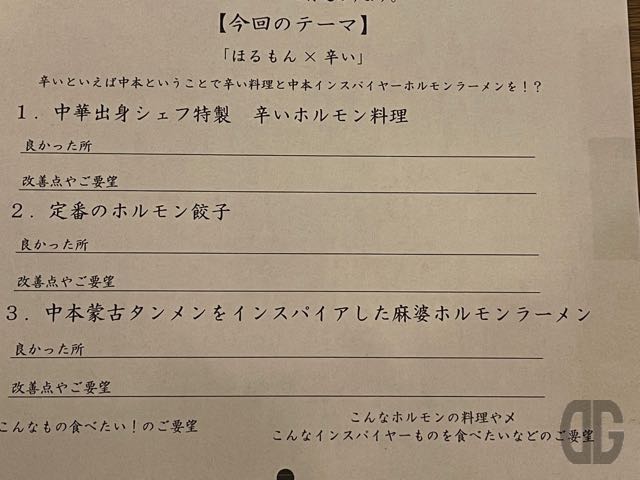 【今回のテーマ】
「ほるもん×辛い」
辛いといえば中本ということで辛い料理と中本インスパイヤーホルモンラーメンを！？
１．中華出身シェフ特製　辛いホルモン料理
良かった所
改善点やご要望
２．定番のホルモン餃子
良かった所
改善点やご要望
３．中本蒙古タンメンをインスパイアした麻婆ホルモンラーメン
良かった所
改善点やご要望
こんなもの食べたい！のご要望
こんなホルモンの料理やメ
こんなインスパイヤーものを食べたいなどのご要望
DG